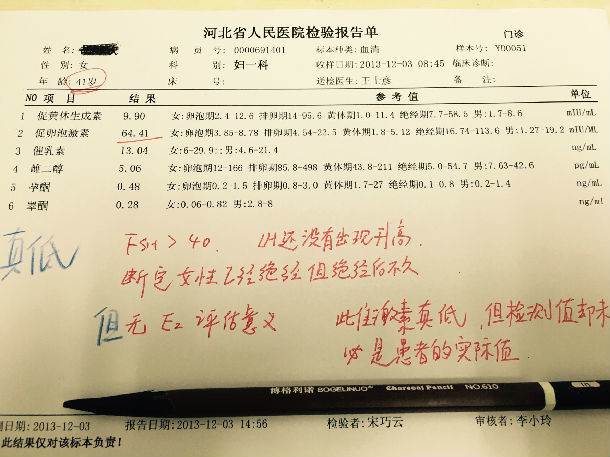 河北省人民医院检验报告单 门诊
姓 名: 病 员 号: 0000691401 标本种类:血清 样本号: YD0051
性 别:女 科 别: 妇一科 收样日期:2013-12-03 08:45 临床诊断:
年 龄:41岁 床 号: 送检医生:王上彦 备 注:
NO 项 目 结 果 参 考 值 单位
1 促黄体生成素 9.90 女:卵泡期2.4-12.6 排卵期14-95.6 黄体期1.0-11.4 绝经期7.7-58.5 男:1.7-8.6 mIU/mL
2 促卵泡激素 64.41 女:卵泡期3.85-8.78 排卵期4.54-22.5 黄体期1.8-5.12 绝经期16.74-113.6 男:1.27-19.2 mIU/mL
3 催乳素 13.04 女:6-29.9::男:4.6-21.4 ng/mL
4 雌二醇 5.06 女:卵泡期12-166 排卵期85.8-498 黄体期43.8-211 绝经期5.0-54.7 男:7.63-42.6 pg/mL
5 孕酮 0.48 女:卵泡期0.2-1.5 排卵期0.8-3.0 黄体期1.7-27 绝经期0.1-0.8 男:0.2-1.4 ng/mL
6 睾酮 0.28 女:0.06-0.82 男:2.8-8 ng/mL
真低 FSH>40. LH还没有出现升高.
断定女性已经绝经但绝经后不久
但无E2评估意义 此佳激素真低,但检测值却未
必是患者的实际值.
博格利诺 BOGELINUO Charcoal Pencil NO.610
测日期:2013-12-03 报告日期:2013-12-03 14:56 检验者:宋巧云 审核者:李小玲
此结果仅对该标本负责!